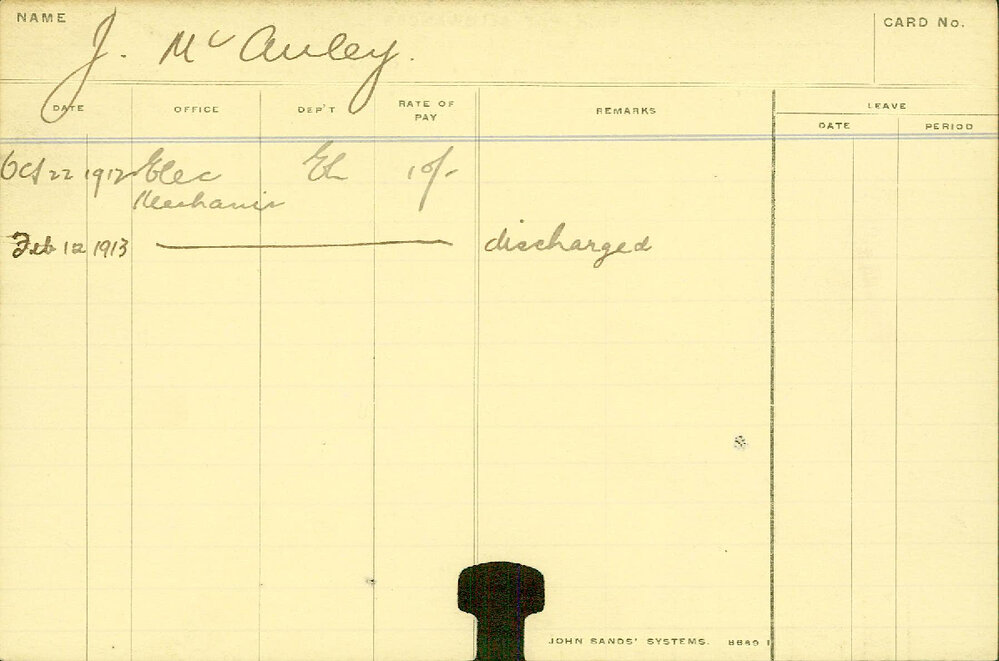 NAME
J. McAuley.
CARD No.
DATE OFFICE DEP'T RATE OF PAY REMARKS LEAVE
DATE PERIOD
Oct 22 1912 Elec EL 10/-
Mechanic
Feb 12 1913 discharged
JOHN SANDS' SYSTEMS.